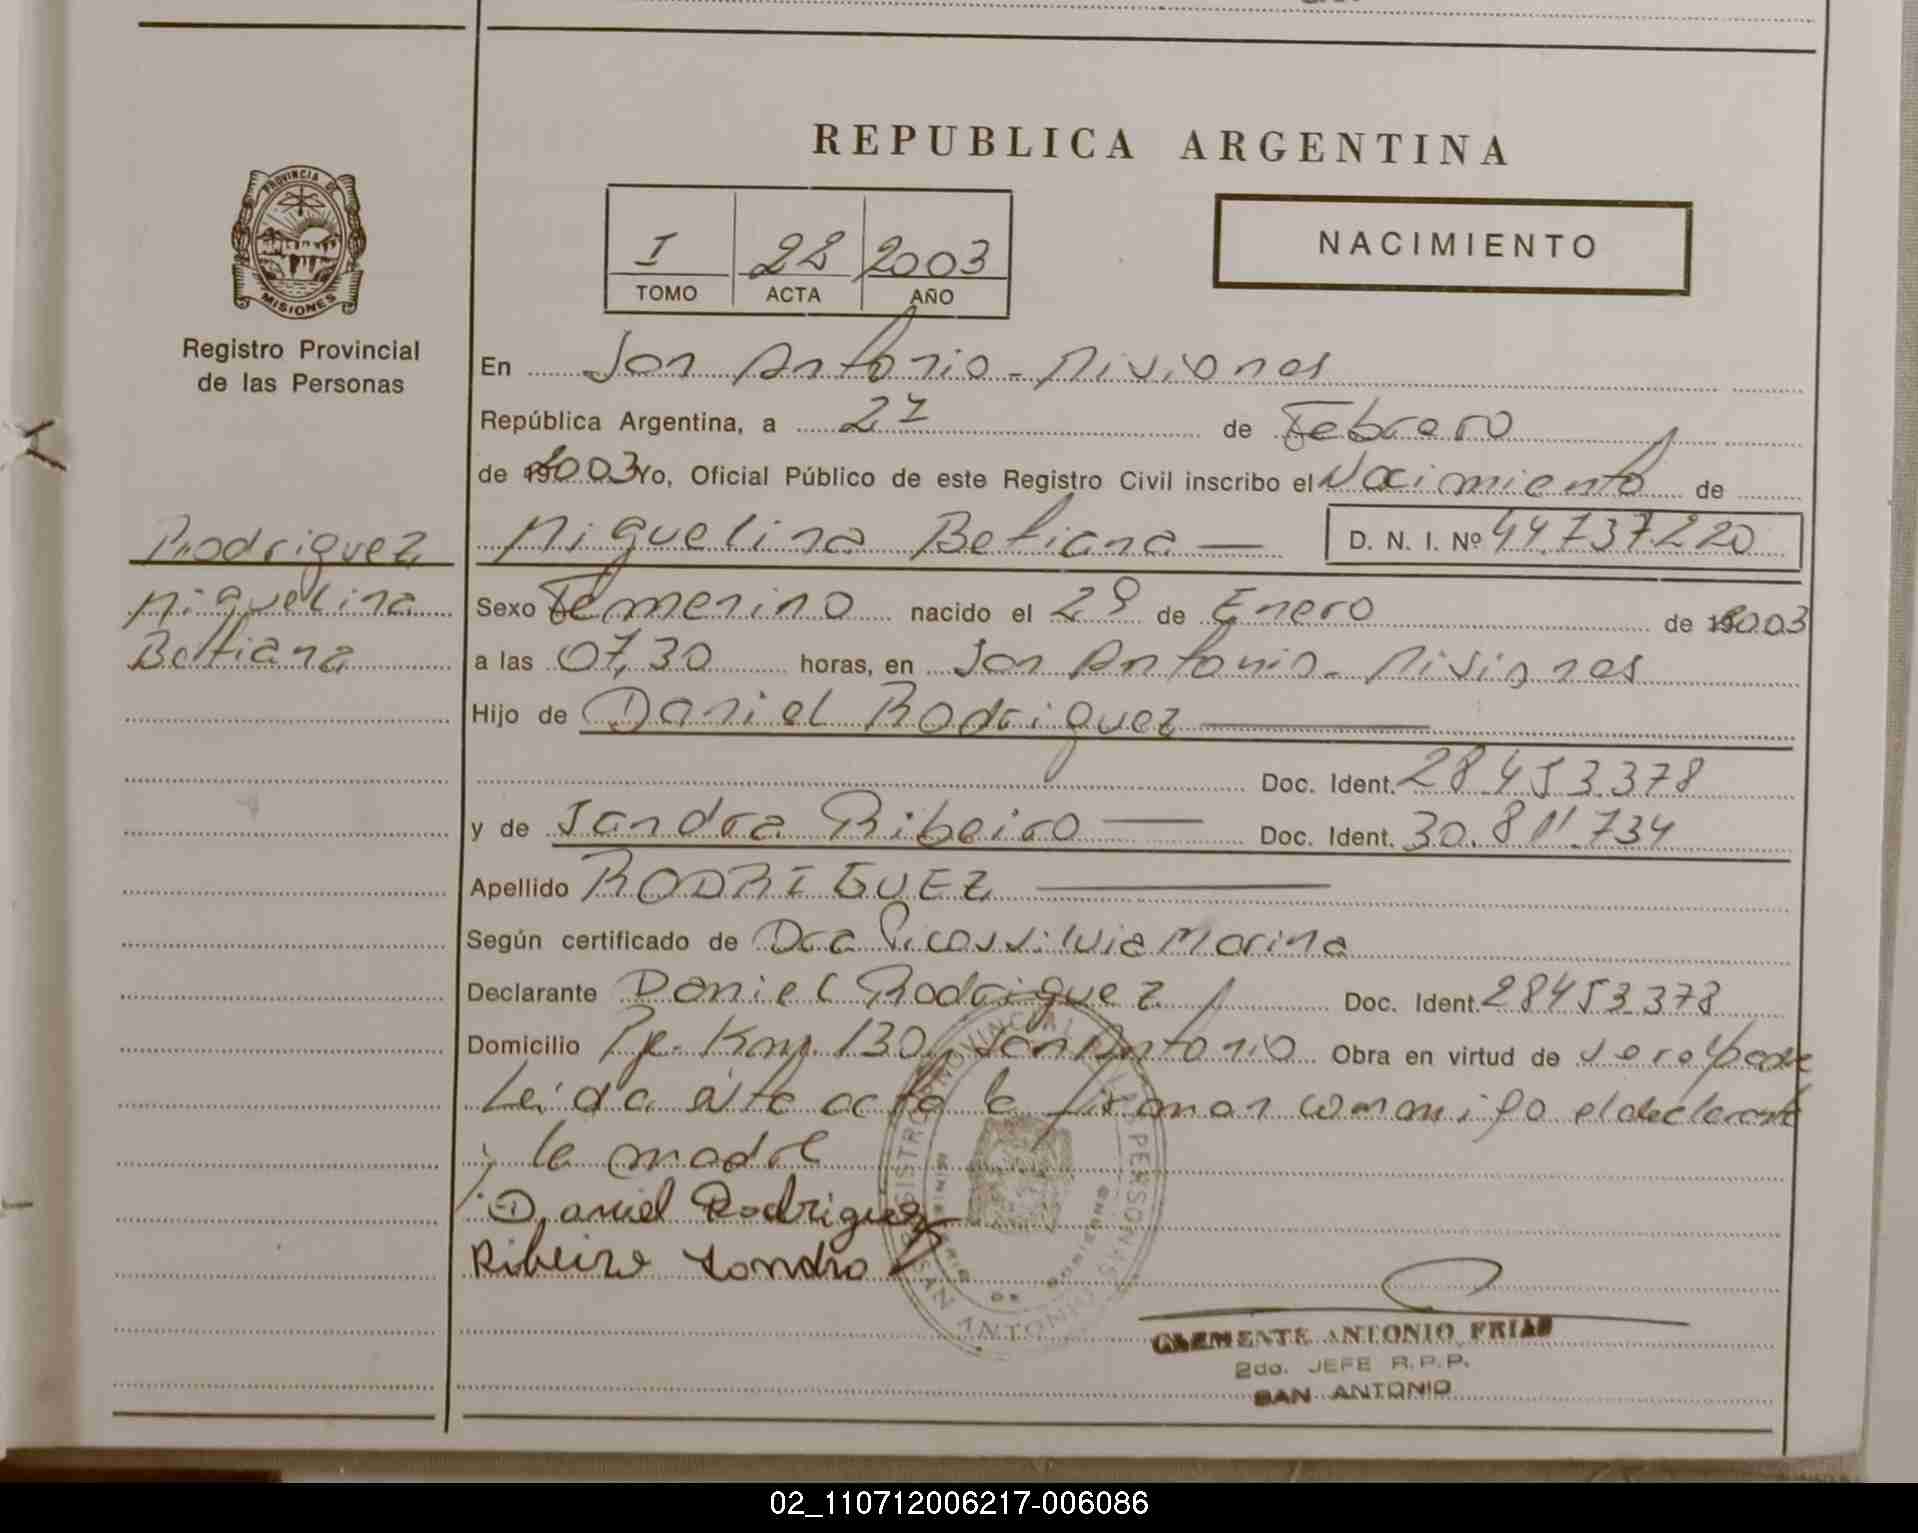 REPUBLICA ARGENTINA
PROVINCIA DE
MISIONES
Registro Provincial
de las Personas
I 22 2003
TOMO ACTA AÑO
NACIMIENTO
En San Antonio - Misiones
República Argentina, a 27 de Febrero
de 2003 Yo, Oficial Público de este Registro Civil inscribo el Nacimiento de
Rodriguez
Miguelina
Betiana
Miguelina Betiana — D. N. I. Nº 44.737.220
Sexo Femenino nacido el 29 de Enero de 2003
a las 07,30 horas, en San Antonio - Misiones
Hijo de Daniel Rodriguez
Doc. Ident. 28.453.378
y de Sandra Ribeiro — Doc. Ident. 30.811.734
Apellido RODRIGUEZ
Según certificado de Dra Picos Silvia Marina
Declarante Daniel Rodriguez Doc. Ident. 28453378
Domicilio Km. 130, San Antonio Obra en virtud de ser el padre
Leida esta acta la firman conmigo el declarante
y la madre
Daniel Rodriguez
Ribeiro Sandra
REGISTRO PROVINCIAL DE LAS PERSONAS
MINISTERIO DE GOBIERNO
SAN ANTONIO
CLEMENTE ANTONIO FRIAS
2do. JEFE R.P.P.
SAN ANTONIO
02_110712006217-006086